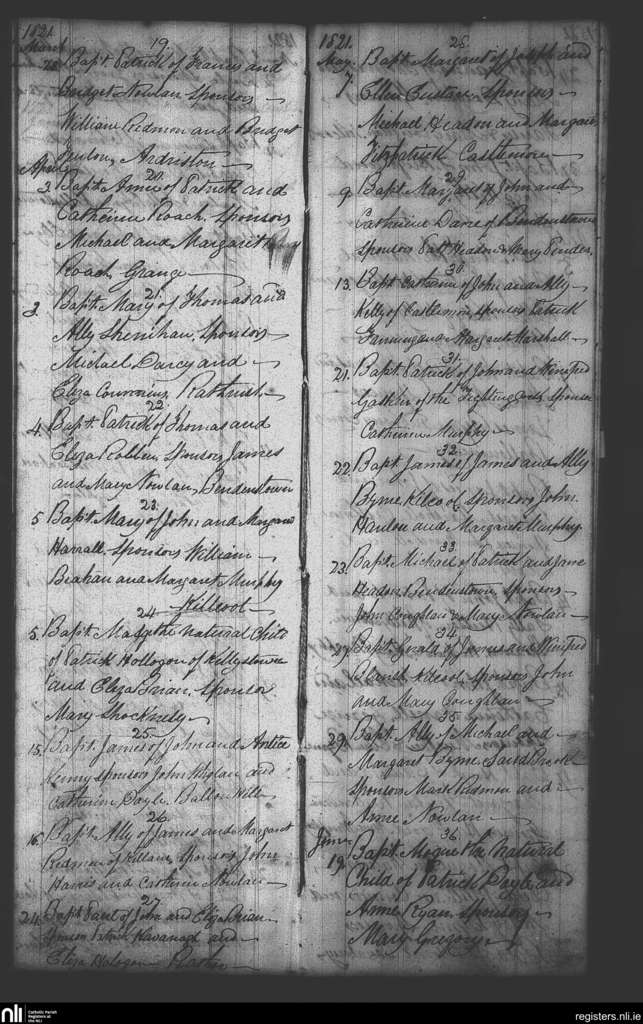 1821.
March
19.
28 Bapt. Patrick of Francis and
Bridget Nowlan Sponsors
William Redmon and Bridget
Ardriston
April
20.
3. Bapt. Anne of Patrick and
Catherine Roach. Sponsors
Michael and Margaret
Roach, Grange
21.
3. Bapt. Mary of Thomas and
Ally Shenihan, Sponsors
Michael Darcy and
Eliza
22
4. Bapt. Patrick of Thomas and
Eliza Sponsors James
and Mary Nowlan, Bendenstown
23.
5 Bapt. Mary of John and Margaret
Harrall Sponsors William
and Margaret Murphy
Killcool
24
5. Bapt. the Natural Child
of Patrick Hollogon of Kellystown
and Eliza Brian. Sponsor
Mary
25
15. Bapt. James of John and
Kenny sponsors John and
Catherine Doyle Ballon Hill
26
16. Bapt. Ally of James and Margaret
Redmon of sponsors John
Harris and Catherine Nowlan
27
24. Bapt. Paul of John and Eliza Brian
Sponsor Patrick Kavanagh and
Eliza
1821.
May.
28.
7 Bapt. Margaret of Joseph and
Ellen Eustace. Sponsors
Michael Headon and Margaret
Fitzpatrick Castlemore
29
9 Bapt. Margaret of John and
Catherine of Bendenstown
sponsors Patt Headon & Mary
30
13. Bapt. Catherine of John and Ally
Kelly of Castlemore sponsors Patrick
and Margaret Marshall
31.
21. Bapt. Patrick of John and Winifred
of the Sponsor
Catherine Murphy
32.
22. Bapt. James of James and Ally
Byrne Kilcool sponsors John
Hanlon and Margaret Murphy
33
23. Bapt. Michael of Patrick and Jane
Headon Bendenstown sponsors
John Coughlan & Mary Nowlan
34
Bapt. Gerald of James and Winifred
Kilcool. Sponsors John
and Mary Coughlan
35
29. Bapt. Ally of Michael and
Margaret Byrne Sand Brook
sponsors Mark Redmon and
Anne Nowlan
June
36
19. Bapt. Mogue the Natural
Child of Patrick Doyle and
Anne Ryan Sponsors
Mary Gregory
nli
Catholic Parish
Registers at
the NLI
registers.nli.ie